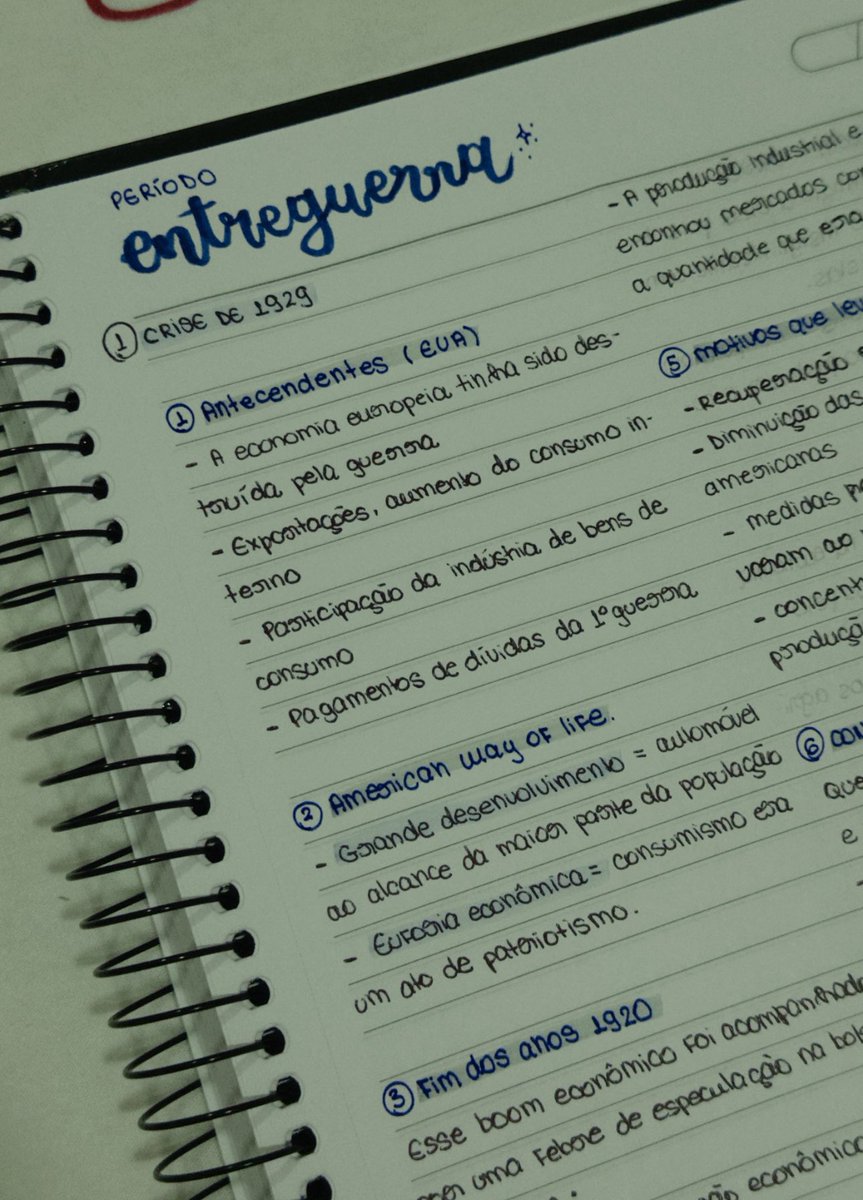 PERÍODO
entreguerra
① CRISE DE 1929
① Antecendentes (EUA)
- A economia europeia tinha sido des-
truída pela guerra
- Exportações, aumento do consumo in-
terno
- Participação da indústria de bens de
consumo
- Pagamentos de dívidas da 1º guerra
② American way of life.
- Grande desenvolvimento = automóvel
ao alcance da maior parte da população
- Euforia econômica = consumismo era
um ato de patriotismo.
③ Fim dos anos 1920
Esse boom econômico foi acompanhado
uma febre de especulação na
econômica
- A produção industrial e
mercados
a quantidade que
⑤ motivos que
- Recuperação
- Diminuição das
americanas
- medidas
ao
-
produção
⑥
que
e